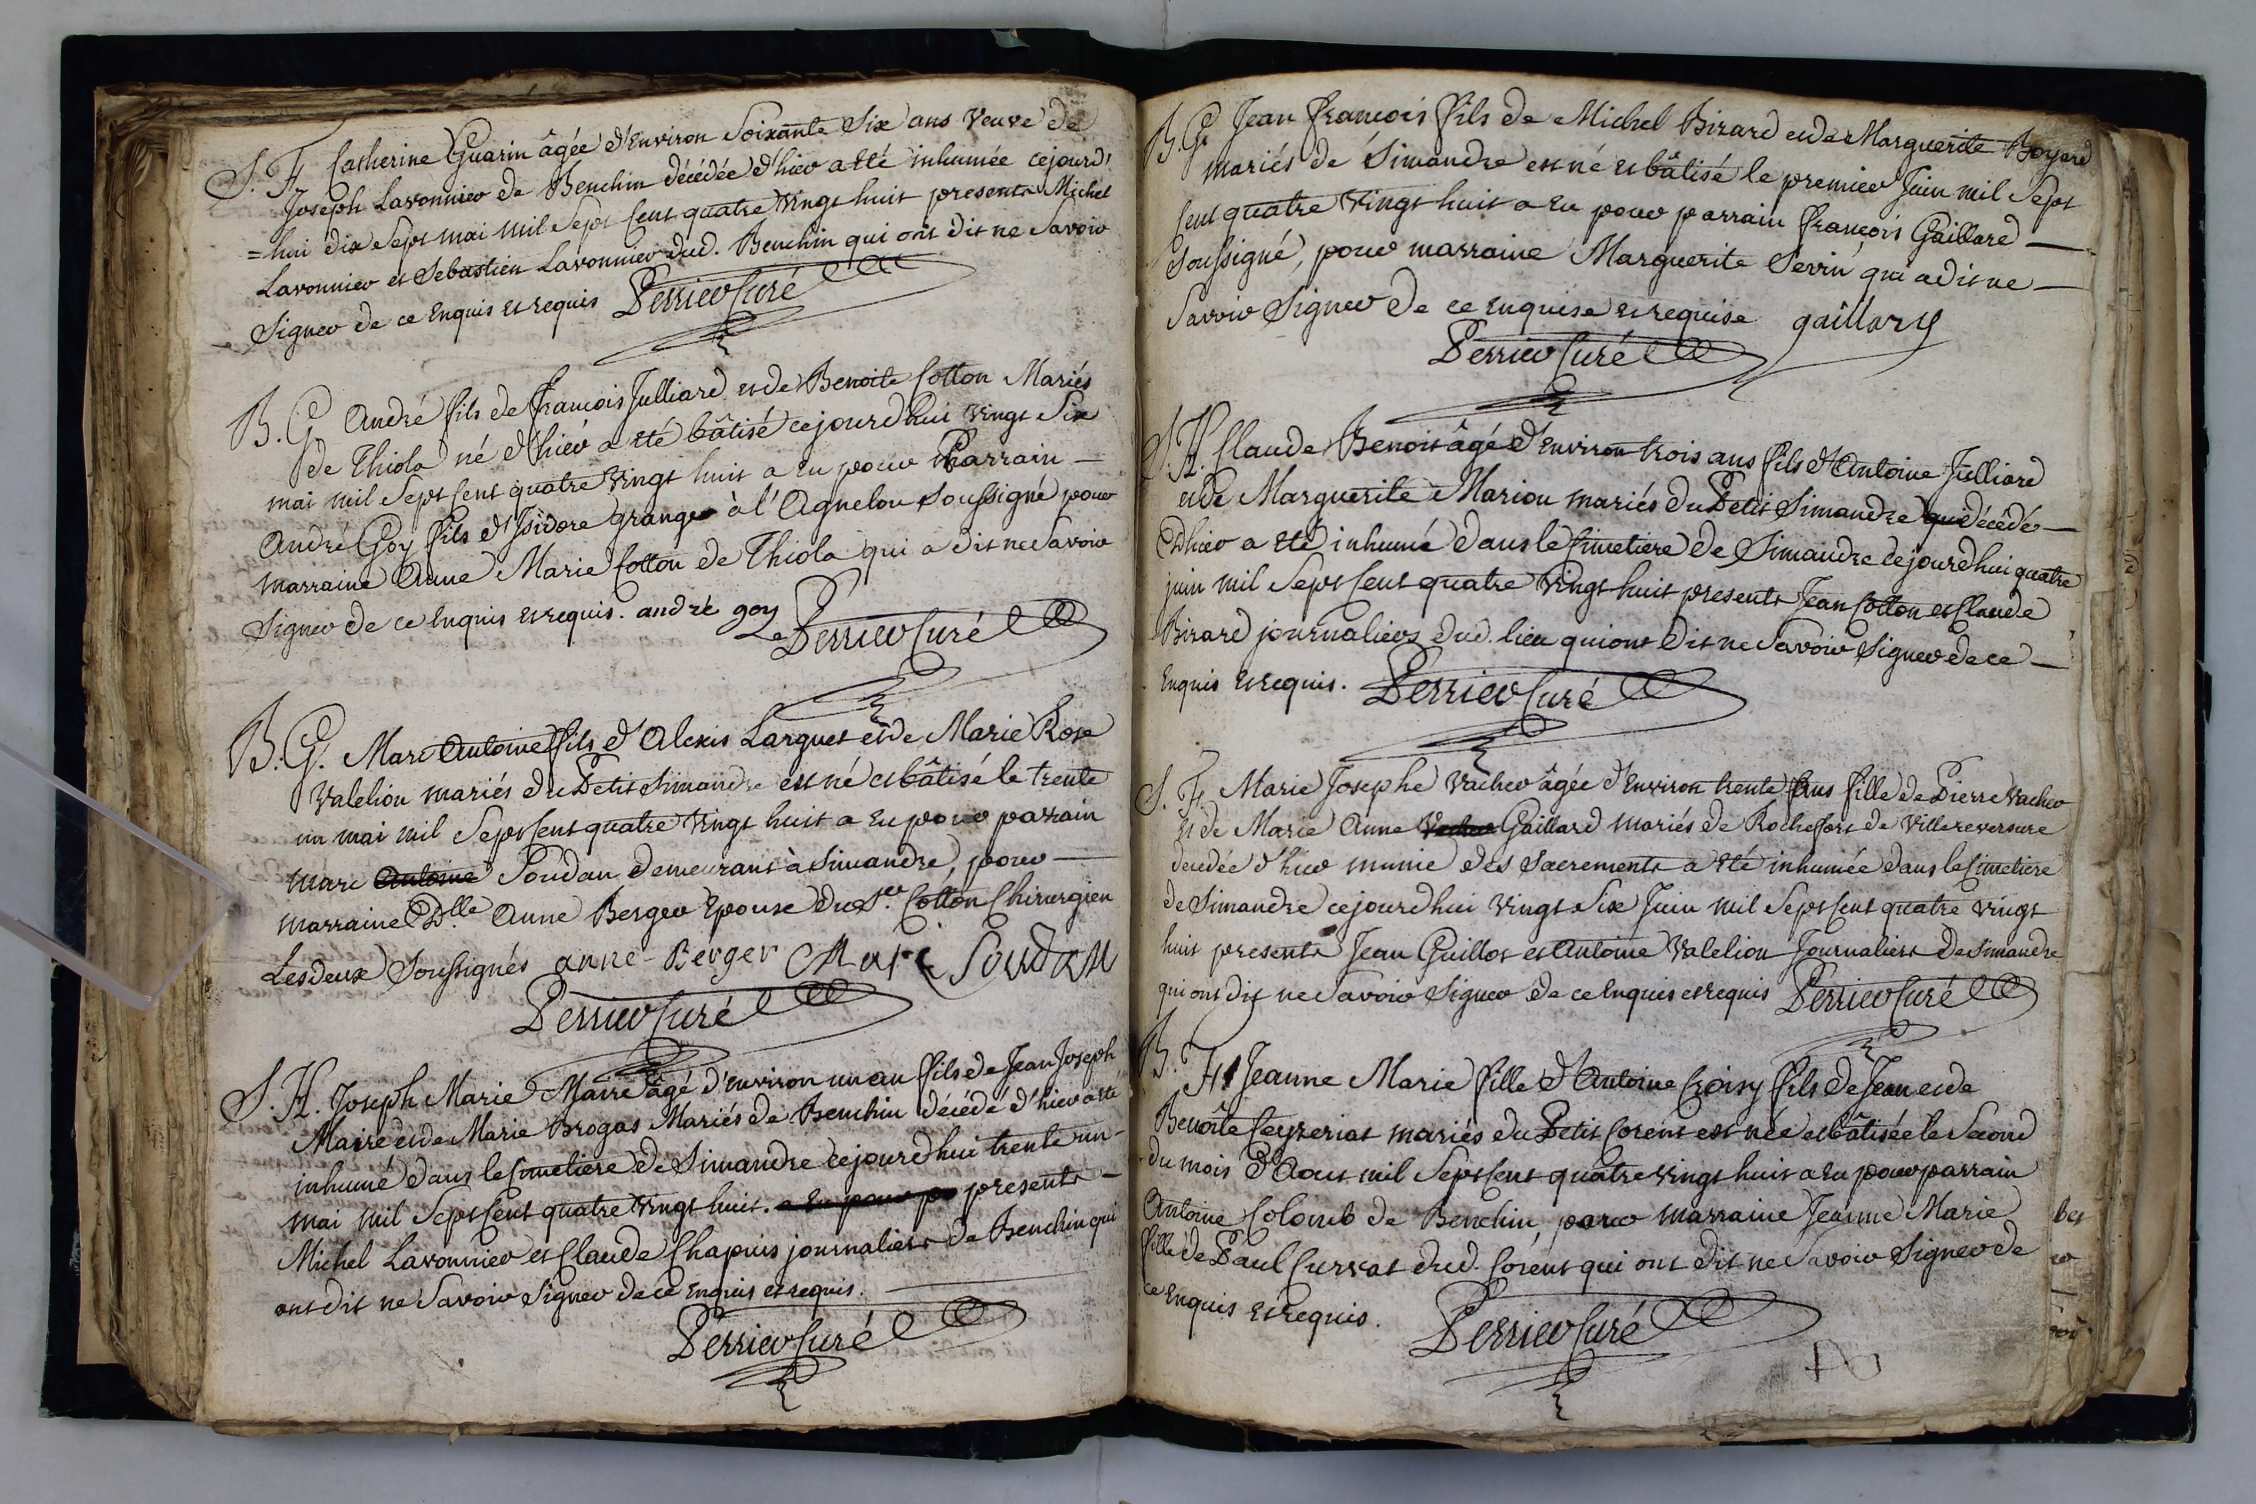 S. F. Catherine Guarin âgée d'Environ Soixante Six ans Veuve de
Joseph Lavonnier de Benchin décédée d'hier a été inhumée cejourd'
=hui dix Sept mai mil Sept Cent quatre Vingt huit presents Michel
Lavonnier et Sebastien Lavonnier dud. Benchin qui ont dit ne Savoir
Signer de ce Enquis et requis Perrier Curé
B. G André fils de François Julliard et de Benoite Cotton Mariés
de Thiola né d'hier a été bâtisé cejourdhui vingt Six
mai mil Sept Cent quatre Vingt huit a Eu pour Parrain —
André Goy fils d'Isidore granger à l'Agnelou Soussigné pour
marraine Anne Marie Cotton de Thiola qui a dit ne Savoir
Signer de ce Enquis et requis. andré goy
Perrier Curé
B. G. Marc Antoine fils d'Alexis Larguet et de Marie Rose
Valelion mariés du Petit Simandre est né et bâtisé le trente
un mai mil Sept Cent quatre Vingt huit a Eu pour parrain
Marc Antoine Soudan demeurant à Simandre, pour —
marraine Dlle Anne Berger Epouse du Sr. Cotton Chirurgien
Les deux Soussignés anne Berger Marc Soudan
Perrier Curé
S. H. Joseph Marie Maire âgé d'environ un an fils de Jean Joseph
Maire et de Marie Brogas Mariés de Benchin décédé d'hier a été
inhumé dans le Cimetiere de Simandre cejourdhui trente un
mai mil Sept Cent quatre Vingt huit. a Eu pour pa presents —
Michel Lavonnier et Claude Chapuis journaliers de Benchin qui
ont dit ne Savoir Signer de ce Enquis et requis.
Perrier Curé
B. G Jean François fils de Michel Birard et de Marguerite Boyard
mariés de Simandre est né et bâtisé le premier Juin mil Sept
Cent quatre Vingt huit a Eu pour parrain François Gaillard —
Soussigné, pour marraine Marguerite Sevin qui a dit ne —
Savoir Signer de ce Enquise et requise gaillard
Perrier Curé
S. H. Claude Benoit âgé d'Environ trois ans fils d'Antoine Julliard
et de Marguerite Marion mariés du Petit Simandre qui décédé —
Dhier a été inhumé dans le Cimetiere de Simandre cejourdhui quatre
juin mil Sept Cent quatre Vingt huit presents Jean Cotton et Claude
Birard journaliers dud. lieu qui ont dit ne Savoir Signer de ce —
Enquis et requis. Perrier Curé
S. F. Marie Josephe Vacher âgée d'Environ trente Ans fille de Pierre Vacher
et de Marie Anne Vacher Gaillard mariés de Rochefort de Villereversure
decedée d'hier munie des Sacrements a été inhumée dans le Cimetiere
de Simandre cejourdhui Vingt Six Juin mil Sept Cent quatre Vingt
huit presents Jean Guillot et Antoine Valelion Journaliers de Simandre
qui ont dit ne Savoir Signer de ce Enquis et requis Perrier Curé
B. F. Jeanne Marie fille d'Antoine Croisy fils de Jean et de
Benoîte Ceyzeriat mariés du Petit Corent est née et bâtisée le Second
du mois d'Aout mil Sept Cent quatre Vingt huit a Eu pour parrain
Antoine Colomb de Benchin pour marraine Jeanne Marie
fille de Paul Curvat dud. Corent qui ont dit ne Savoir Signer de
ce Enquis et requis. Perrier Curé